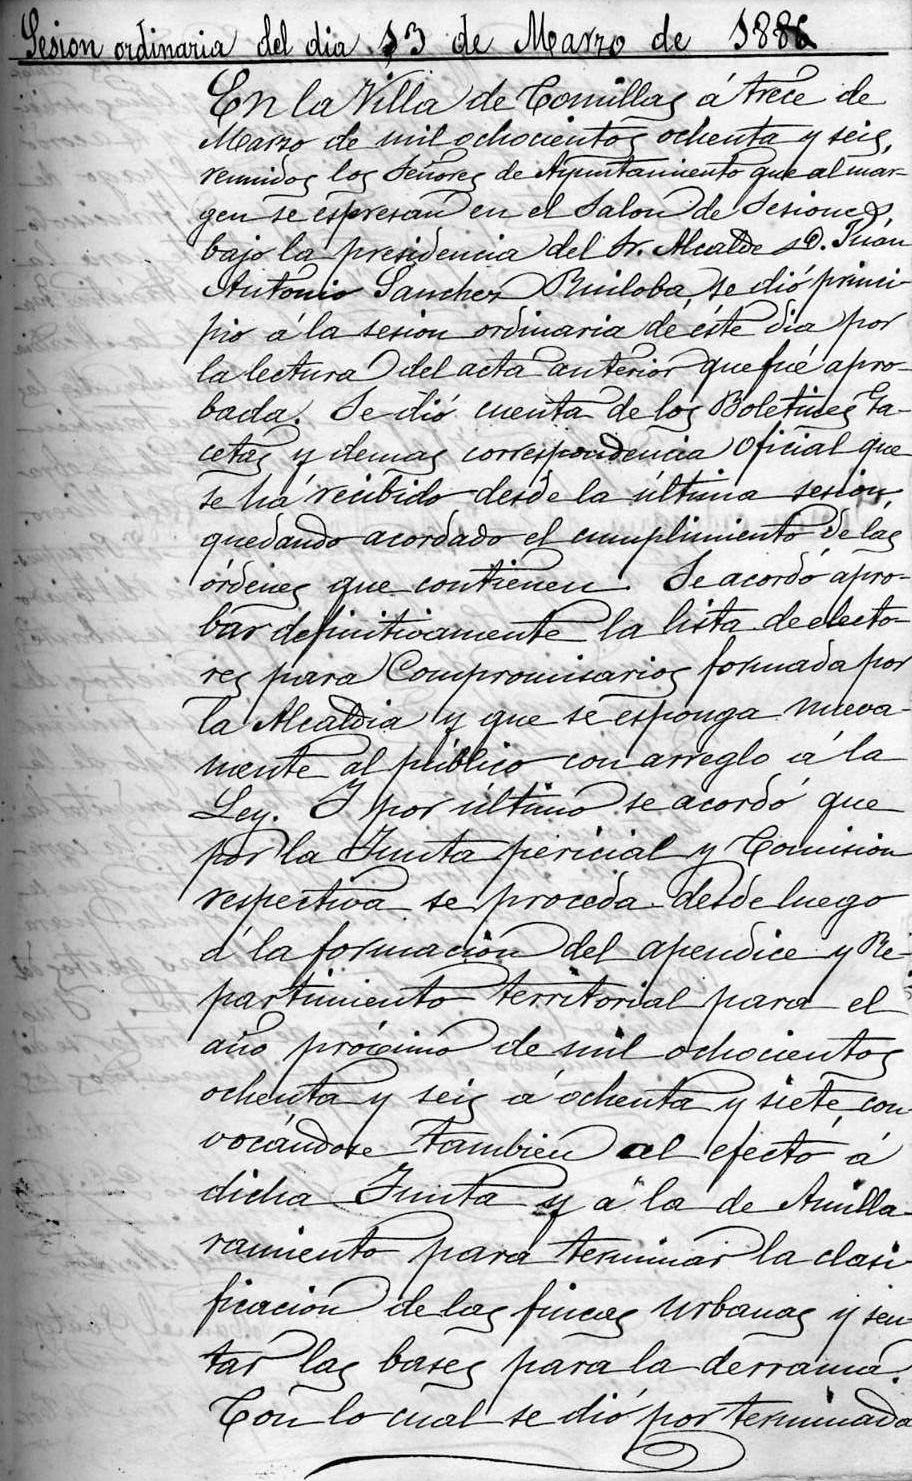 Sesion ordinaria del dia 13 de Marzo de 1886
En la Villa de Comillas á trece de
Marzo de mil ochocientos ochenta y seis,
reunidos los Señores de Ayuntamiento que al mar-
gen se espresan en el Salon de Sesiones,
bajo la presidencia del Sr. Alcalde D. Juan
Antonio Sanchez Ruiloba, se dió princi-
pio á la sesion ordinaria de éste dia por
la lectura del acta anterior que fué apro-
bada. Se dió cuenta de los Boletines Ga-
cetas y demas correspondencia Oficial que
se ha recibido desde la última sesion,
quedando acordado el cumplimiento de las
órdenes que contienen. Se acordó apro-
bar definitivamente la lista de electo-
res para Compromisarios formada por
la Alcaldia y que se esponga nueva-
mente al público con arreglo á la
Ley. Y por último se acordó que
por la Junta pericial y Comision
respectiva se proceda desde luego
á la formacion del apendice y Re-
partimiento territorial para el
año prócsimo de mil ochocientos
ochenta y seis á ochenta y siete, con-
vocándose tambien al efecto á
dicha Junta y á la de Amilla-
ramiento para terminar la clasi-
ficacion de las fincas urbanas y sen-
tar las bases para la derrama.
Con lo cual se dió por terminada